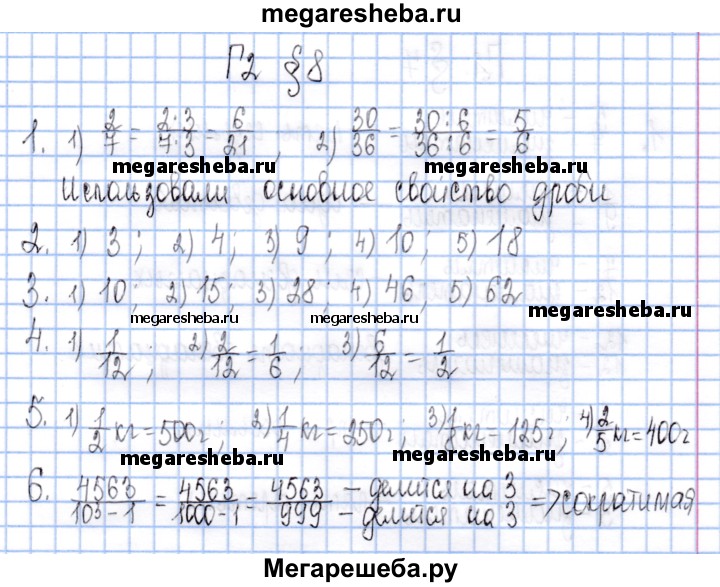 megaresheba.ru
Г2 §8
1. 1) 2/7 = 2·3/7·3 = 6/21, 2) 30/36 = 30:6/36:6 = 5/6
megaresheba.ru megaresheba.ru
Использовали основное свойство дроби
2. 1) 3; 2) 4; 3) 9; 4) 10; 5) 18
3. 1) 10; 2) 15; 3) 28; 4) 46; 5) 62
megaresheba.ru megaresheba.ru megaresheba.ru
4. 1) 1/12; 2) 2/12 = 1/6, 3) 6/12 = 1/2
5. 1) 1/2 кг = 500г; 2) 1/4 кг = 250г; 3) 1/8 кг = 125г; 4) 2/5 кг = 400г
megaresheba.ru megaresheba.ru
6. 4563/103-1 = 4563/1000-1 = 4563/999 – делится на 3 – делится на 3 => сократимая
Мегарешеба.ру